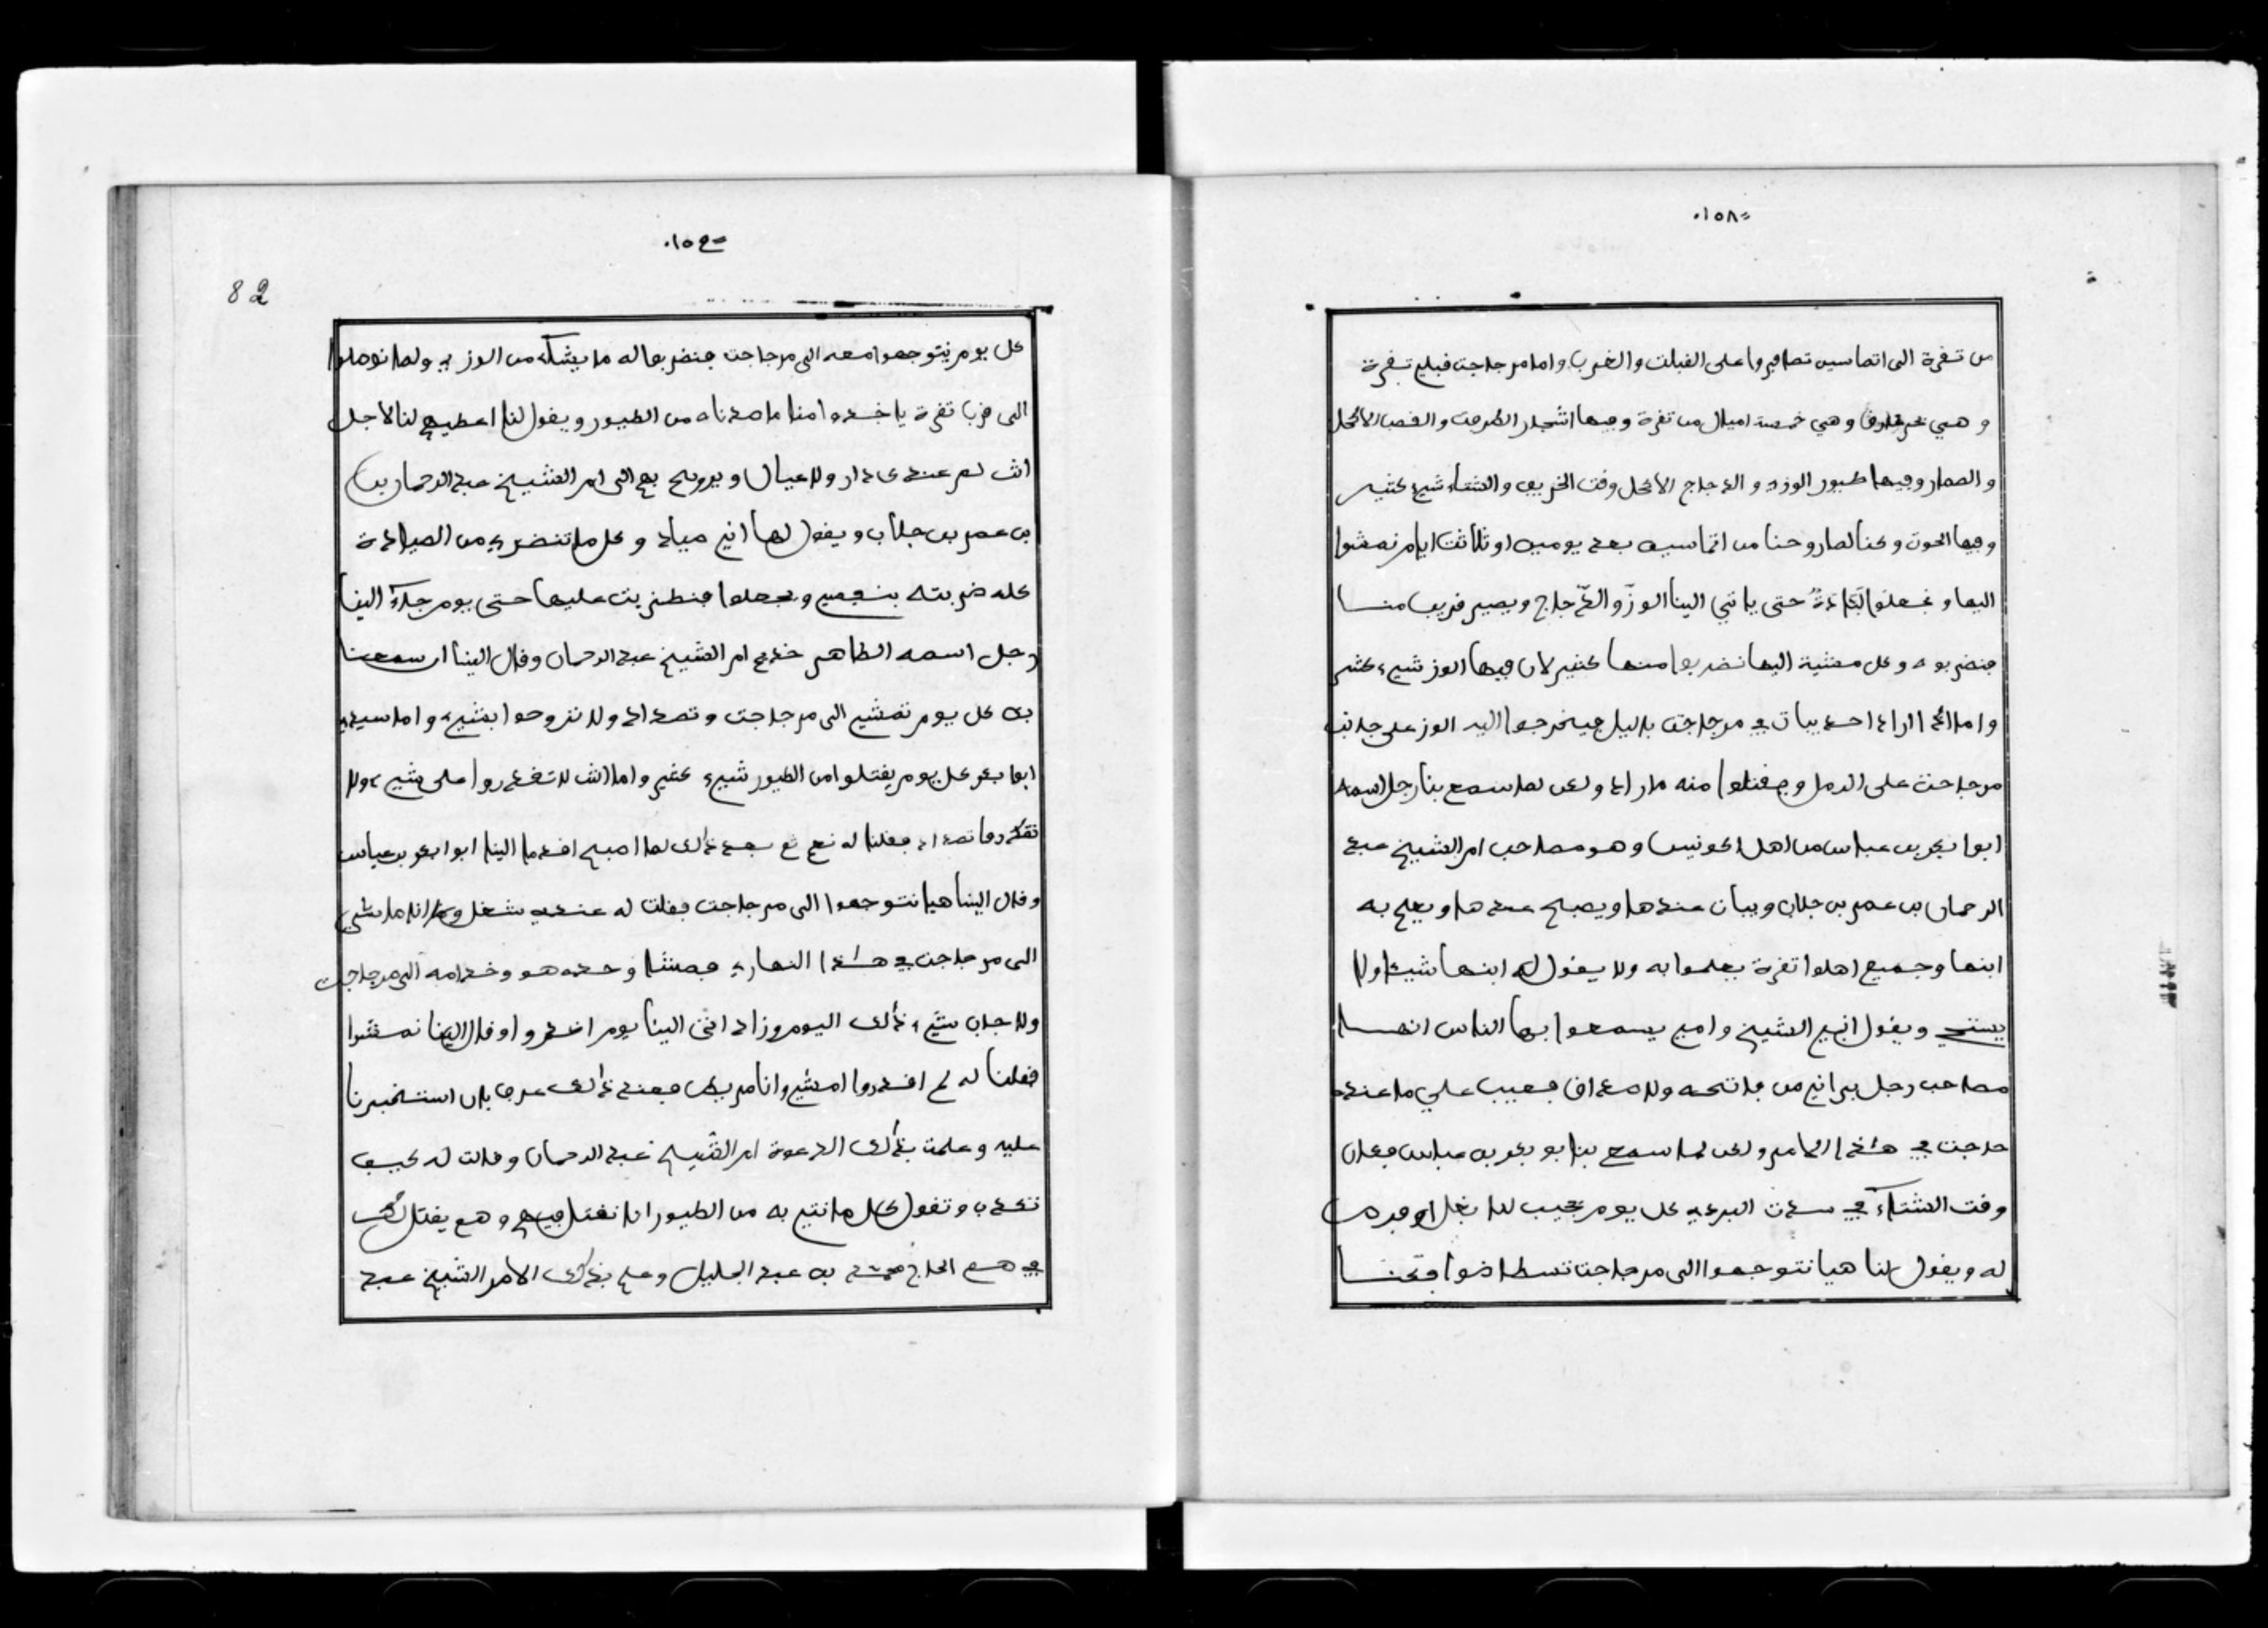 ١٥٨
من تقرة الى اتماسين تصافروا على القبلت والغرب واما مرجاجت قبلي تقرة
و هي وهي خمست اميال من تقرة وفيها اشجار الطرفت والقصب الاكحل
والصمار وفيها طيور الوز والدجاج الاكحل وقت الخريف والشتاء شيء كثير
وفيها الحوت ونحنا لما روحنا من اتماسين بعد يومين او ثلاثت ايام نمشوا
اليها و حتى ياتي الينا الوز والدجاج ويصير قريب منا
فنضربوه وكل مشية اليها نضربوا منها كثير لان فيها الوز شيء كثير
واما اذا اراد احد يبات في مرجاجت باليل فيخرجوا اليه الوز على جانب
مرجاجت على الرمل ويقتلوا منه ما راد ولكن لما سمع بنا رجل اسمه
ابوا بكر بن عباس من اهل الكونيس وهو مصاحب ام الشيخ عبد
الرحمان بن عمر بن جلاب ويبات عندها ويصبح عندها ويعلم به
ابنها وجميع اهلوا تقرة يعلموا به ولا يقول له ابنها شيء ولا
يستحي ويقول انني الشيخ وامي يسمعوا بها الناس انها
مصاحب رجل براني من فاتحه ولا صداق فعيب علي ما عنده
حاجت في هاذا الامر ولكن لما سمع بنا بو بكر بن عباس فكان
وقت الشتاء في شدت البرد كل يوم يجيب لنا بغل او فرس
له ويقول لنا هيا نتوجهوا الى مرجاجت تسطاضوا فكنا
١٥٩
82
كل يوم نتوجهوا معه الى مرجاجت فنضربوا له ما يشاء من الوز ولما نوصلوا
الى قرب تقرة ياخذوا منا ما صدناه من الطيور ويقول لنا اعطيهم لنا لاجل
انت لم عندك دار ولا عيال ويروح بهم الى ام الشيخ عبد الرحمان
بن عمر بن جلاب ويقول لها اني صياد وكل ما تنضري من الصيادة
كله ضربته بنفسي و عليها حتى يوم جاء الينا
رجل اسمه الطاهر خديم ام الشيخ عبد الرحمان وقال الينا ان سمعنا
بك كل يوم تمشي الى مرجاجت وتصداد ولا تروحوا بشيء واما سيدي
ابوا بكر كل يوم يقتلوا من الطيور شيء كثير واما انت لا تقدروا على شيء ولا
تصداد فقلنا له نعم ثم بعد ذالك لما اصبح اقدما الينا ابوا بكر بن عباس
وقال الينا هيا نتوجهوا الى مرجاجت فقلت له عندي شغل
الى مرجاجت في هاذا النهار فمشا وحده هو وخدامه الى مرجاجت
ولا جاب شيء ذالك اليوم وزاد اتى الينا يوم اخر وقال الينا نمشوا
فقلنا له لم اقدروا امشي وانا مريض فعند ذالك عرف بان استخبرنا
عليه وعلمت بذالك الدعوة ام الشيخ عبد الرحمان وقالت له كيف
تكذب وتقول كل ما نتي به من الطيور انا نقتل فيهم وهم يقتل
فيهم الحاج محمد بن عبد الجليل وعلم بذالك الامر الشيخ عبد